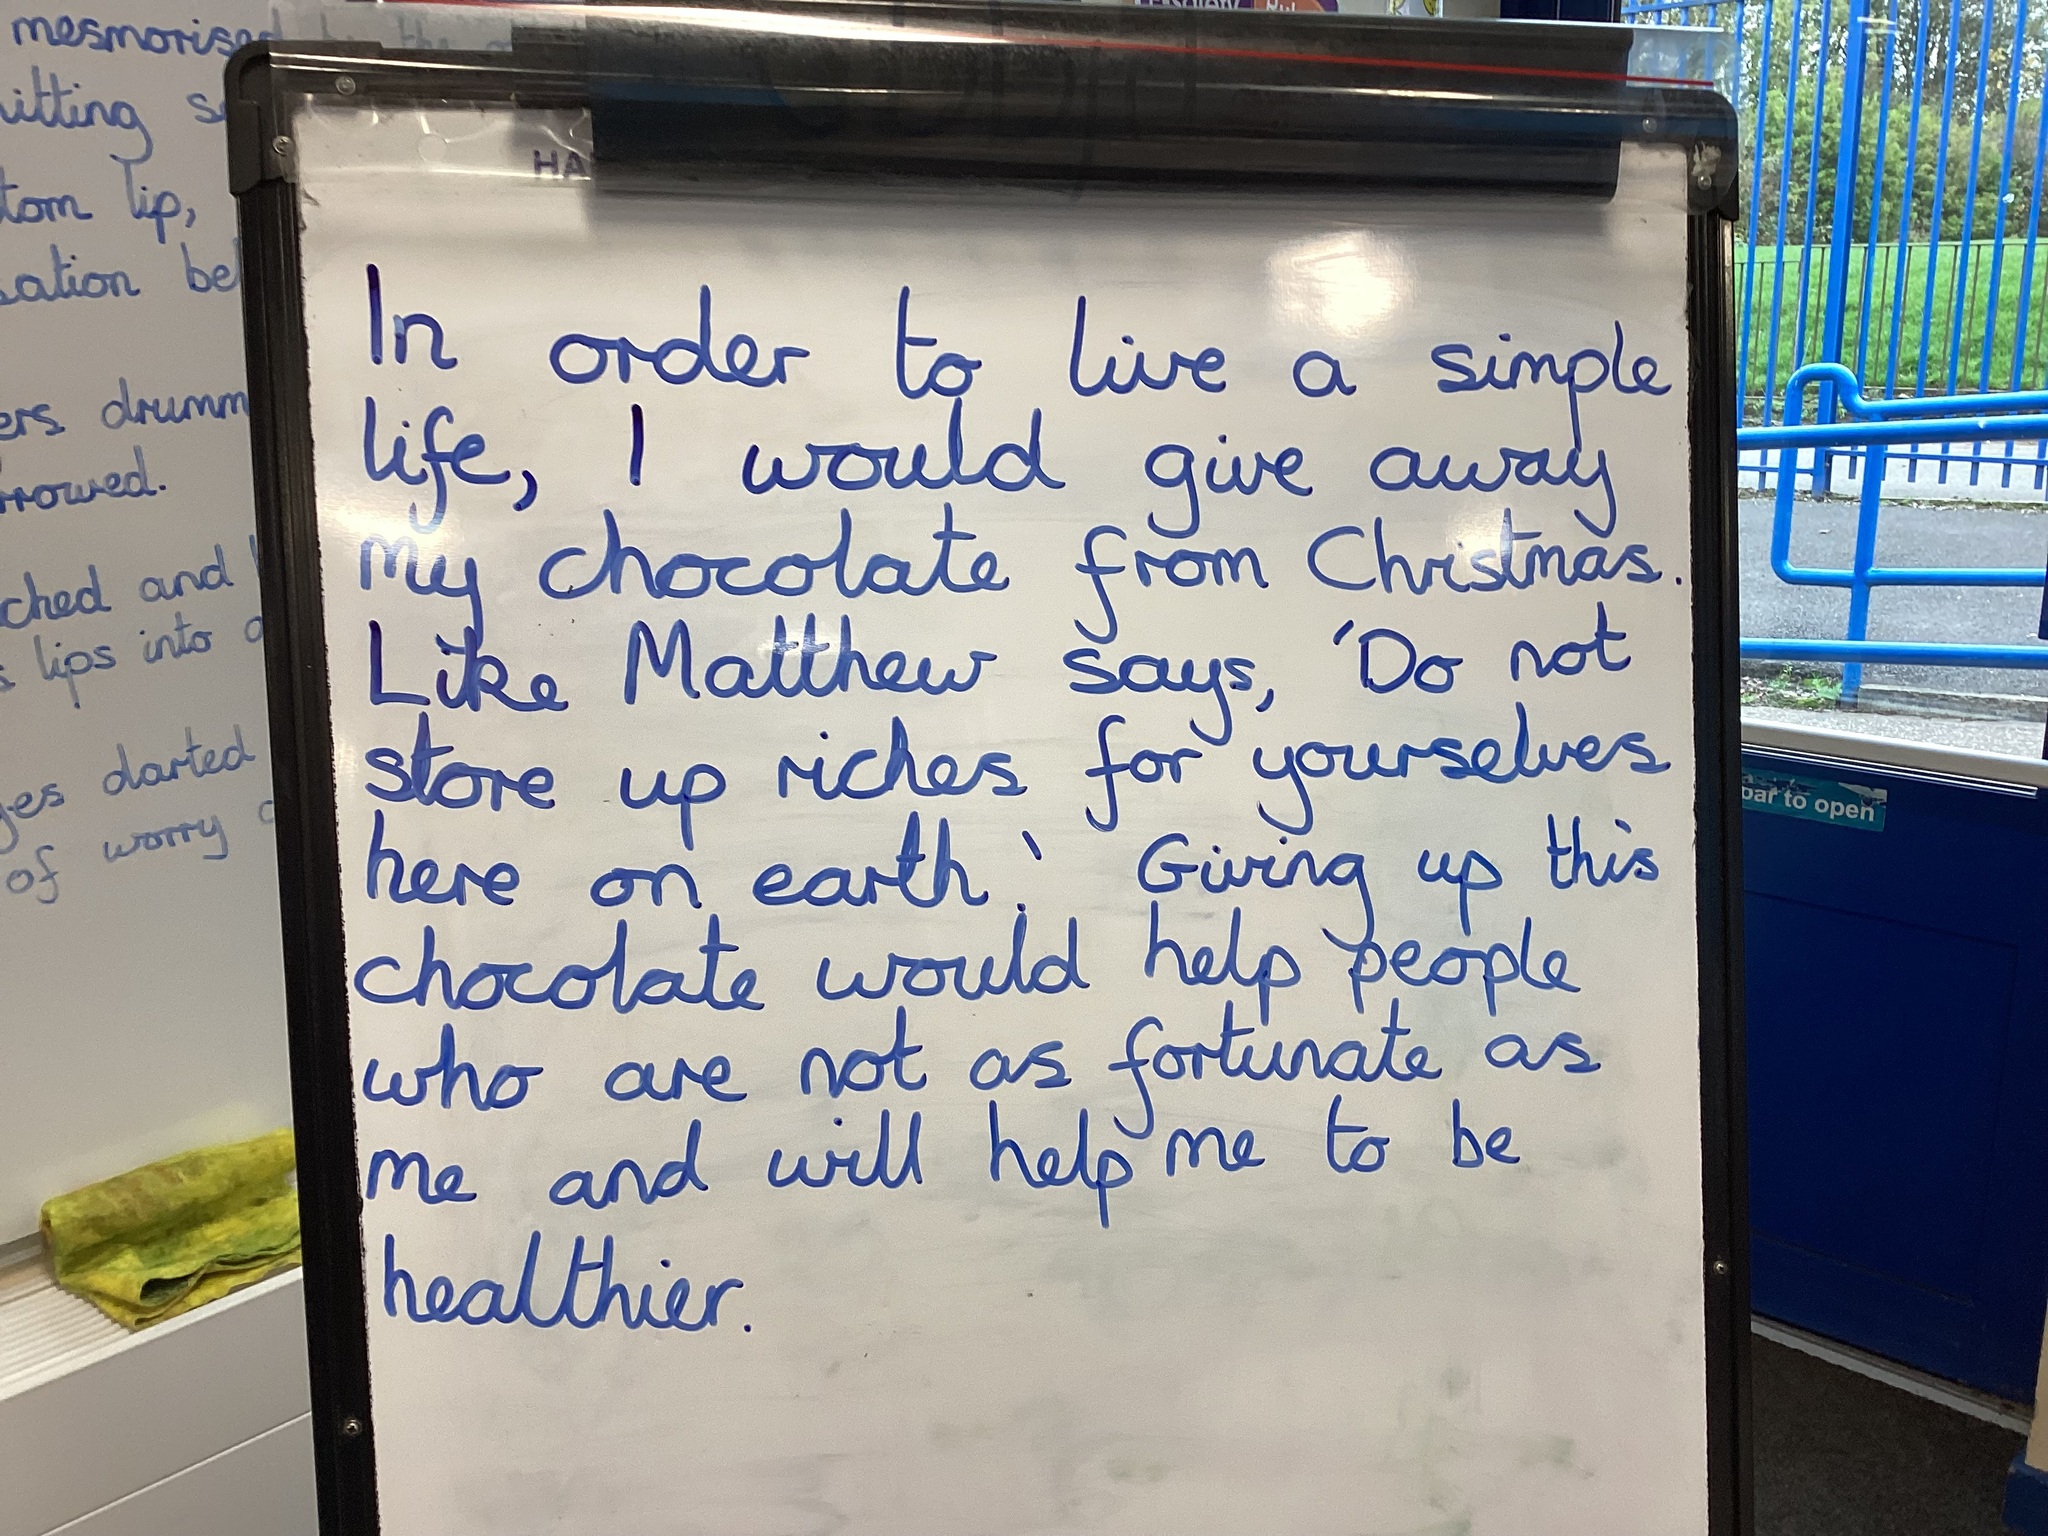 mesmorised by the
itting
tom lip,
sation
ers
rrowed.
ched and
lips into
darted
of worry
HA
In order to live a simple
life, I would give away
my chocolate from Christmas.
Like Matthew says, 'Do not
store up riches for yourselves
here on earth.' Giving up this
chocolate would help people
who are not as fortunate as
me and will help me to be
healthier.
to open